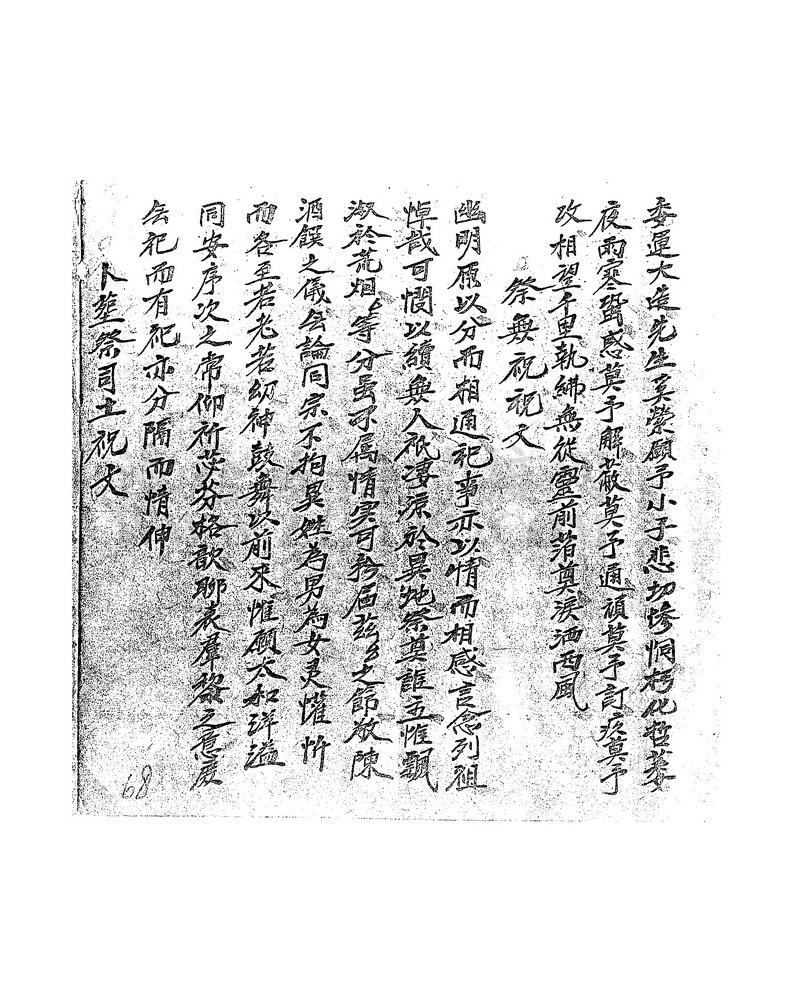 委運大造先生奚榮顧予小子悲切慘恫朽化哲萎
夜雨寒蛩惑莫予解蔽莫予通頑莫予訂疾莫予
攻相望千里執紼無從靈前薄奠淚洒西風
祭無祀祝文
幽明原以分而相通祀事亦以情而相感言念列祖
悼哉可憫以續無人祇凄涼於異地祭奠誰主惟飄
渺於荒烟〻等分雖不属情实可矜屆茲〻之節敬陳
酒饌之儀无論同宗不拘異姓為男為女灵懽忻
而各至若老若幼神鼓舞以前來惟願太和洋溢
同安序次之常仰祈苾芬格歆聊表羣黎之意庶
无祀而有祀亦分隔而情伸
卜塟祭司土祝文
68